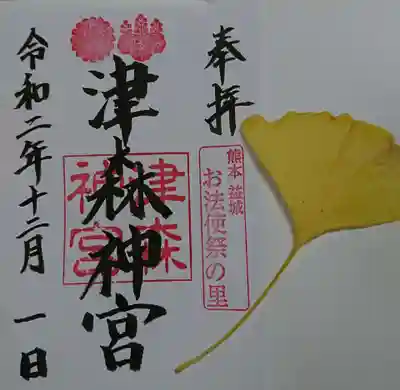 奉拝
熊本 益城
お法使祭の里
津森神宮
津森
神宮
令和二年十二月一日